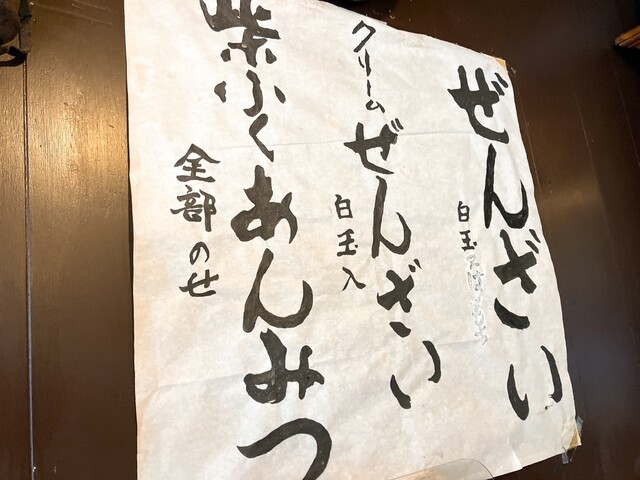 ぜんざい
白玉
クリームぜんざい
白玉入
紫ふくあんみつ
全部のせ